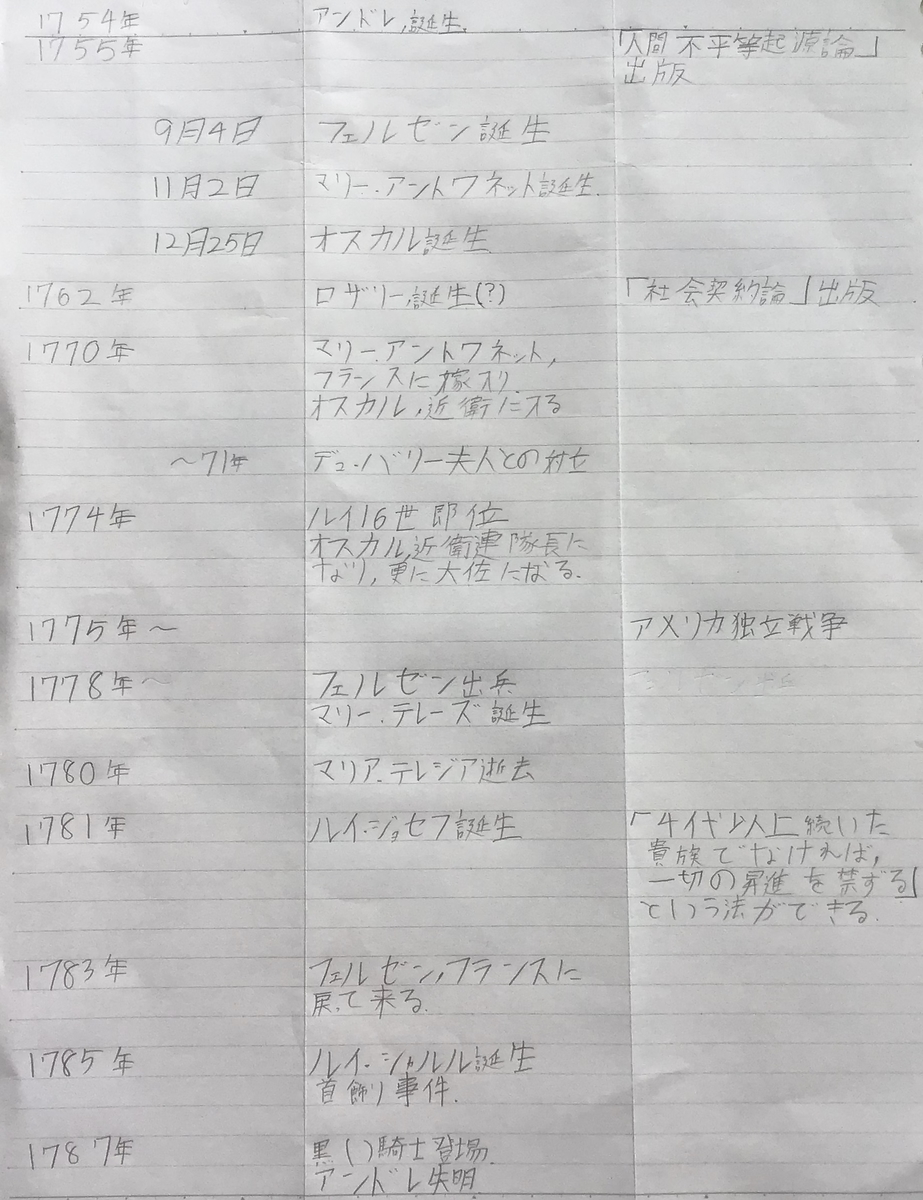 1754年 アンドレ,誕生.
1755年 「人間不平等起源論」
出版
9月4日 フェルゼン誕生
11月2日 マリー.アントワネット誕生.
12月25日 オスカル誕生
1762年 ロザリー,誕生(?) 「社会契約論」出版
1770年 マリー.アントワネット,
フランスに嫁オリ
オスカル,近衛にオる
～71年 デュ・バリー夫人との対立
1774年 ルイ16世即位
オスカル,近衛連隊長に
なり,更に大佐になる.
1775年～ アメリカ独立戦争
1778年～ フェルゼン出兵
マリー.テレーズ誕生
1780年 マリア.テレジア逝去
1781年 ルイ・ジョセフ誕生 「4代以上続いた
貴族でなければ,
一切の昇進を禁ずる」
という法ができる.
1783年 フェルゼン,フランスに
戻って来る.
1785年 ルイ・シャルル誕生
首飾り事件.
1787年 黒い騎士登場.
アンドレ失明